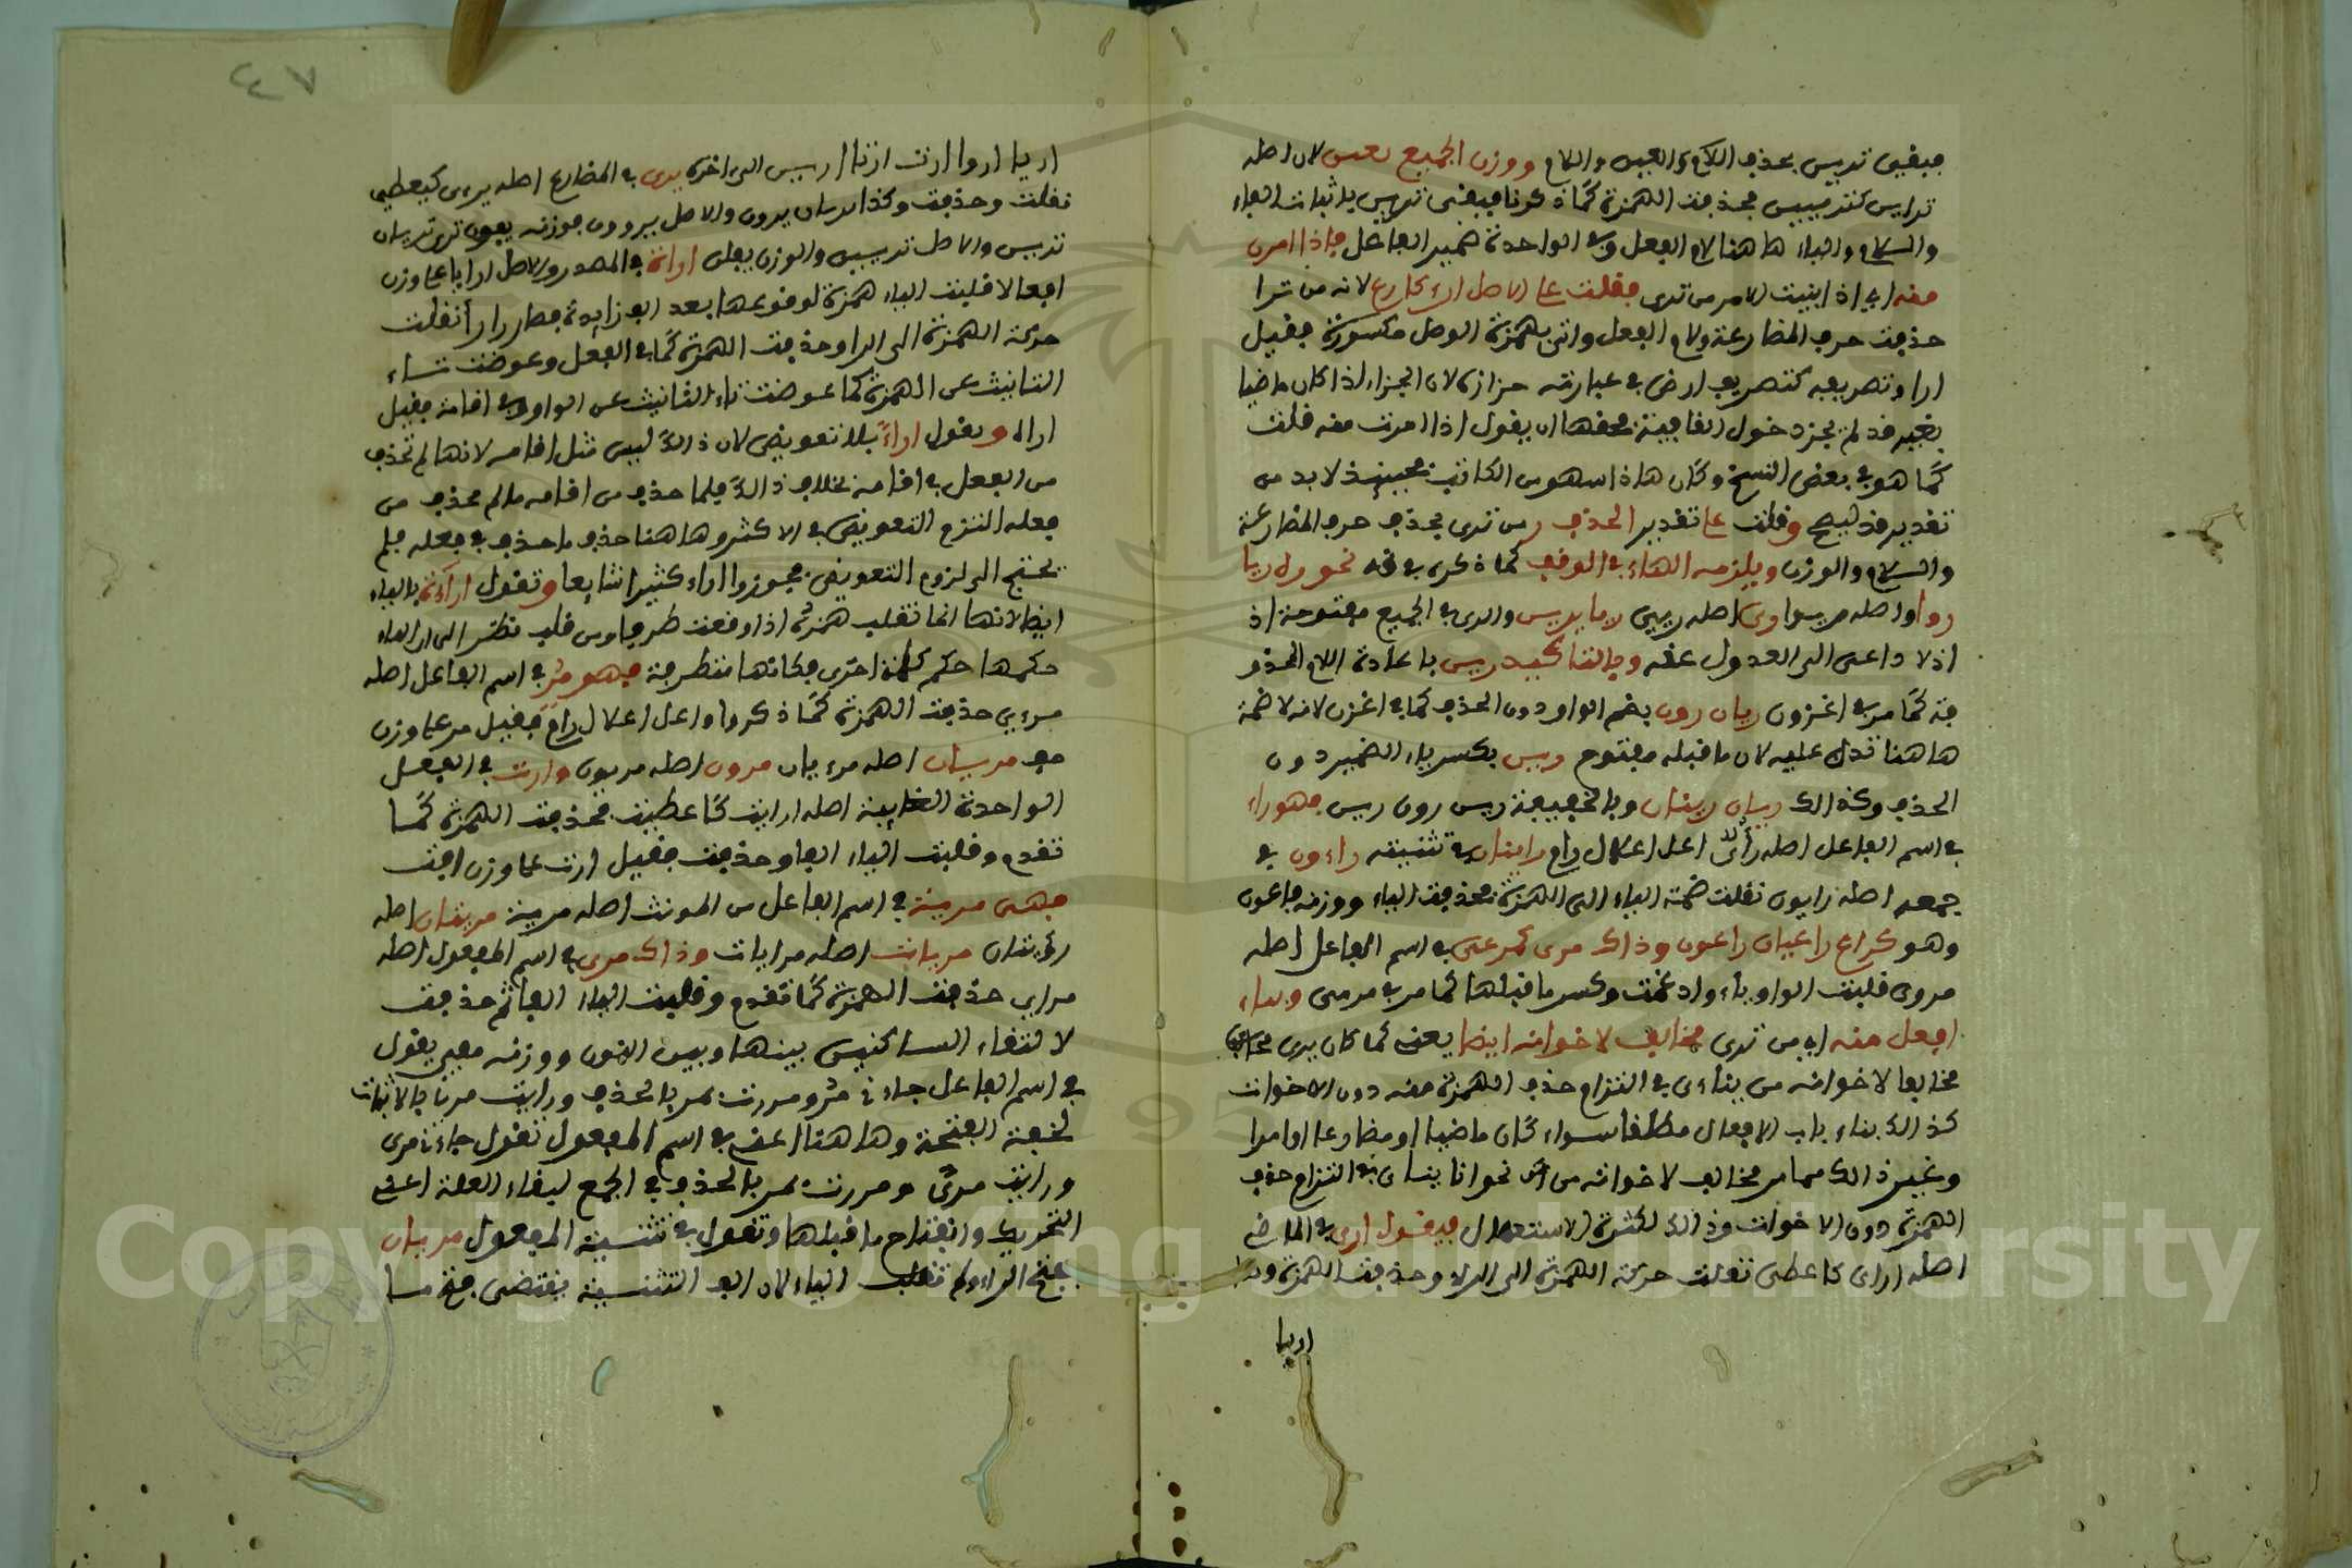 فيبقى تريين بحذف اللام والعين واللام ووزن الجميع تفين لان اصله
ترايين كترضيين فحذفت الهمزة كما ذكرنا فيبقى تريين باثبات الياء
والسلام والياء هاهنا لام الفعل وفي الواحدة ضمير الفاعل فاذا امرت
منه اي اذا بنيت الامر من ترى فقلت على الاصل ارء كارع لانه من ترا
حذفت حرف المضارعة ولام الفعل واتى بهمزة الوصل مكسورة فقيل
ارا وتصريفه كتصريف ارض في عبارته حزازة لان الجزاء اذا كان ماضيا
بغير قد لم يجز دخول الفا فيه فحقها ان يقول اذا امرت منه قلت
كما هو في بعض النسخ وكان هاذا سهو من الكاتب فحينئذ لا بد من
تقدير قد ليصح وقلت على تقدير الحذف ر من ترى بحذف حرف المضارعة
والسلام والوزن ويلزمه الهاء في الوقف كما ذكره في قه نحو ره ريا
روا واصله ريوا وري اصله ريي لا ما يريين والرى في الجميع مفتوحة اذ
اذ لا داعي الى العدول عنه وبالتاكيد رين باعادة اللام المحذو
فة كما مر في اغزون ريان رون بضم الواو دون الحذف كما في اغزن لانه لا ضمة
هاهنا تدل عليه لان ما قبله مفتوح ورين بكسر ياء الضمير دون
الحذف وكذالك ريان رينان وبالخفيفة رين رون رين فهو راء
في اسم الفاعل اصله رأى اعل اعلال رام رايتان في تثنيته راءون في
جمعه اصله رايون نقلت ضمة الياء الى الهمزة فحذفت الياء ووزنه فاعون
وهو كراع راعيان راعون وذاك مرى كمرعى في اسم الفاعل اصله
مروى قلبت الواو ياء وادغمت وكسر ما قبلها كما مر في مرمى وبناء
افعل منه اي من ترى مخالف لاخواته ايضا يعني كما كان يرى
مخالفا لاخواته من يناى في التزام حذف الهمزة منه دون الاخوات
كذالك بناء باب الافعال مطلقا سواء كان ماضيا او مضارعا او امرا
وغير ذالك مما مر مخالف لاخواته من نحو انا يناى في التزام حذف
الهمزة دون الاخوات وذالك لكثرة الاستعمال فيقول ارى في الماضي
اصله اراى كاعطى نقلت حركة الهمزة الى الراء وحذفت الهمزة
اريا
٤٧
اريا اروا ارت ارتا ارين الى اخره يرى في المضارع اصله يرءى كيعطي
نقلت وحذفت وكذا يريان يرون والاصل يرءون فوزنه يفون ترى تريان
تريين والاصل ترءيين والوزن يفلن اراءة في المصدر والاصل ارايا على وزن
افعالا قلبت الياء همزة لوقوعها بعد الف زايدة فصار ارأا نقلت
حركة الهمزة الى الرا وحذفت الهمزة كما في الفعل وعوضت تاء
التانيث عن الهمزة كما عوضت تاء التانيث عن الواو في اقامة فقيل
اراه ويقول اراء بلا تعويض لان ذالك ليس مثل اقامه لانها لم تحذف
من الفعل في اقامة بخلاف ذالك فلما حذف من اقامه ما لم يحذف من
فعله التزم التعويض في الاكثر وهاهنا حذف ما حذف في فعله فلم
يحتج الى لزوم التعويض فجوزوا اراء كثيرا شايعا وتقول اراية بالياء
ايضا لانها انما تقلب همزة اذا وقعت طرفا ومن قلب نظر الى ان الياء
حكمها حكم كلمة اخرى فكانها متطرفة فهو مر في اسم الفاعل اصله
مرءي حذفت الهمزة كما ذكروا واعل اعلال رام فقيل مر على وزن
مف مريان اصله مرءيان مرون اصله مريون وارت في الفعل
الواحدة الغايبة اصله ارايت كاعطيت فحذفت الهمزة كما
تقدم وقلبت الياء الفا وحذفت فقيل ارت على وزن افت
فهى مرية في اسم الفاعل من المونث اصله مرية مريتان اصله
رؤيتان مريات اصله مرايات وذاك مرى في اسم المفعول اصله
مراى حذفت الهمزة كما تقدم وقلبت الياء الفا ثم حذفت
لالتقاء الساكنين بينها وبين التنوين ووزنه مفى يقول
في اسم الفاعل جاءني مر ومررت بمر بالحذف ورايت مريا بالاثبات
لخفة الفتحة وهاهنا اعني في اسم المفعول تقول جاءنا مرى
ورايت مرى ومررت بمر بالحذف في الجمع لبقاء العلة اعني
التحريك وانفتاح ما قبلها وتقول في تثنية المفعول مريان
بفتح الراء ولم تقلب الياء لان الف التثنية يقتضي فتح ما